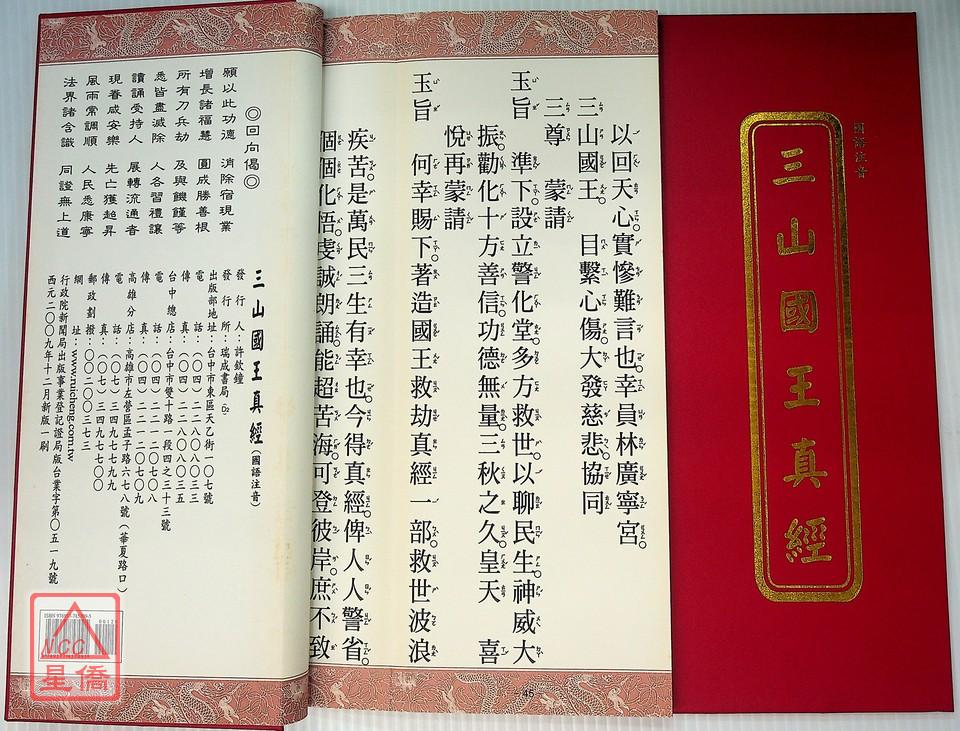 國語注音
三山國王真經
以回天心。實慘難言也。幸員林廣寧宮。
三山國王。目繫心傷。大發慈悲。協同
三尊　蒙請
玉旨　準下。設立警化堂。多方救世。以聊民生。神威大
振。勸化十方善信。功德無量。三秋之久。皇天　喜
悅。再蒙請
玉旨　何幸賜下。著造國王救劫真經一部。救世波浪
疾苦。是萬民三生有幸也。今得真經。俾人人警省。
個個化悟。虔誠朗誦。能超苦海。可登彼岸。庶不致
46
◎回向偈◎
願以此功德　消除宿現業
增長諸福慧　圓成勝善根
所有刀兵劫　及與饑饉等
悉皆盡滅除　人各習禮讓
讀誦受持人　展轉流通者
現眷咸安樂　先亡獲超昇
風雨常調順　人民悉康寧
法界諸含識　同證無上道
三山國王真經（國語注音）
發行人：許欽鐘
發行所：瑞成書局
出版部地址：台中市東區天乙街一〇七號
電話：（〇四）二二八〇〇八三三
傳真：（〇四）二二八〇〇八三五
台中總店：台中市雙十路一段四之三十三號
電話：（〇四）二二一二〇七〇八
傳真：（〇四）二二一一〇七〇九
高雄分店：高雄市左營區孟子路六七八號（華夏路口）
電話：（〇七）三四九七七〇〇
傳真：（〇七）三四九七七九九
郵政劃撥：〇〇二〇〇三七三
網址：www.ruicheng.com.tw
行政院新聞局出版事業登記證局版台業字第〇五一九號
西元二〇〇九年十二月新版一刷
MCC
星僑